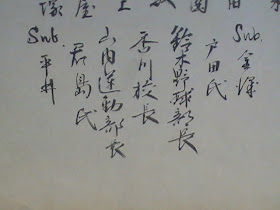 Sub. 金澤
戸田氏
鈴木野球部長
香川校長
山内運動部長
君島氏
Sub. 平井